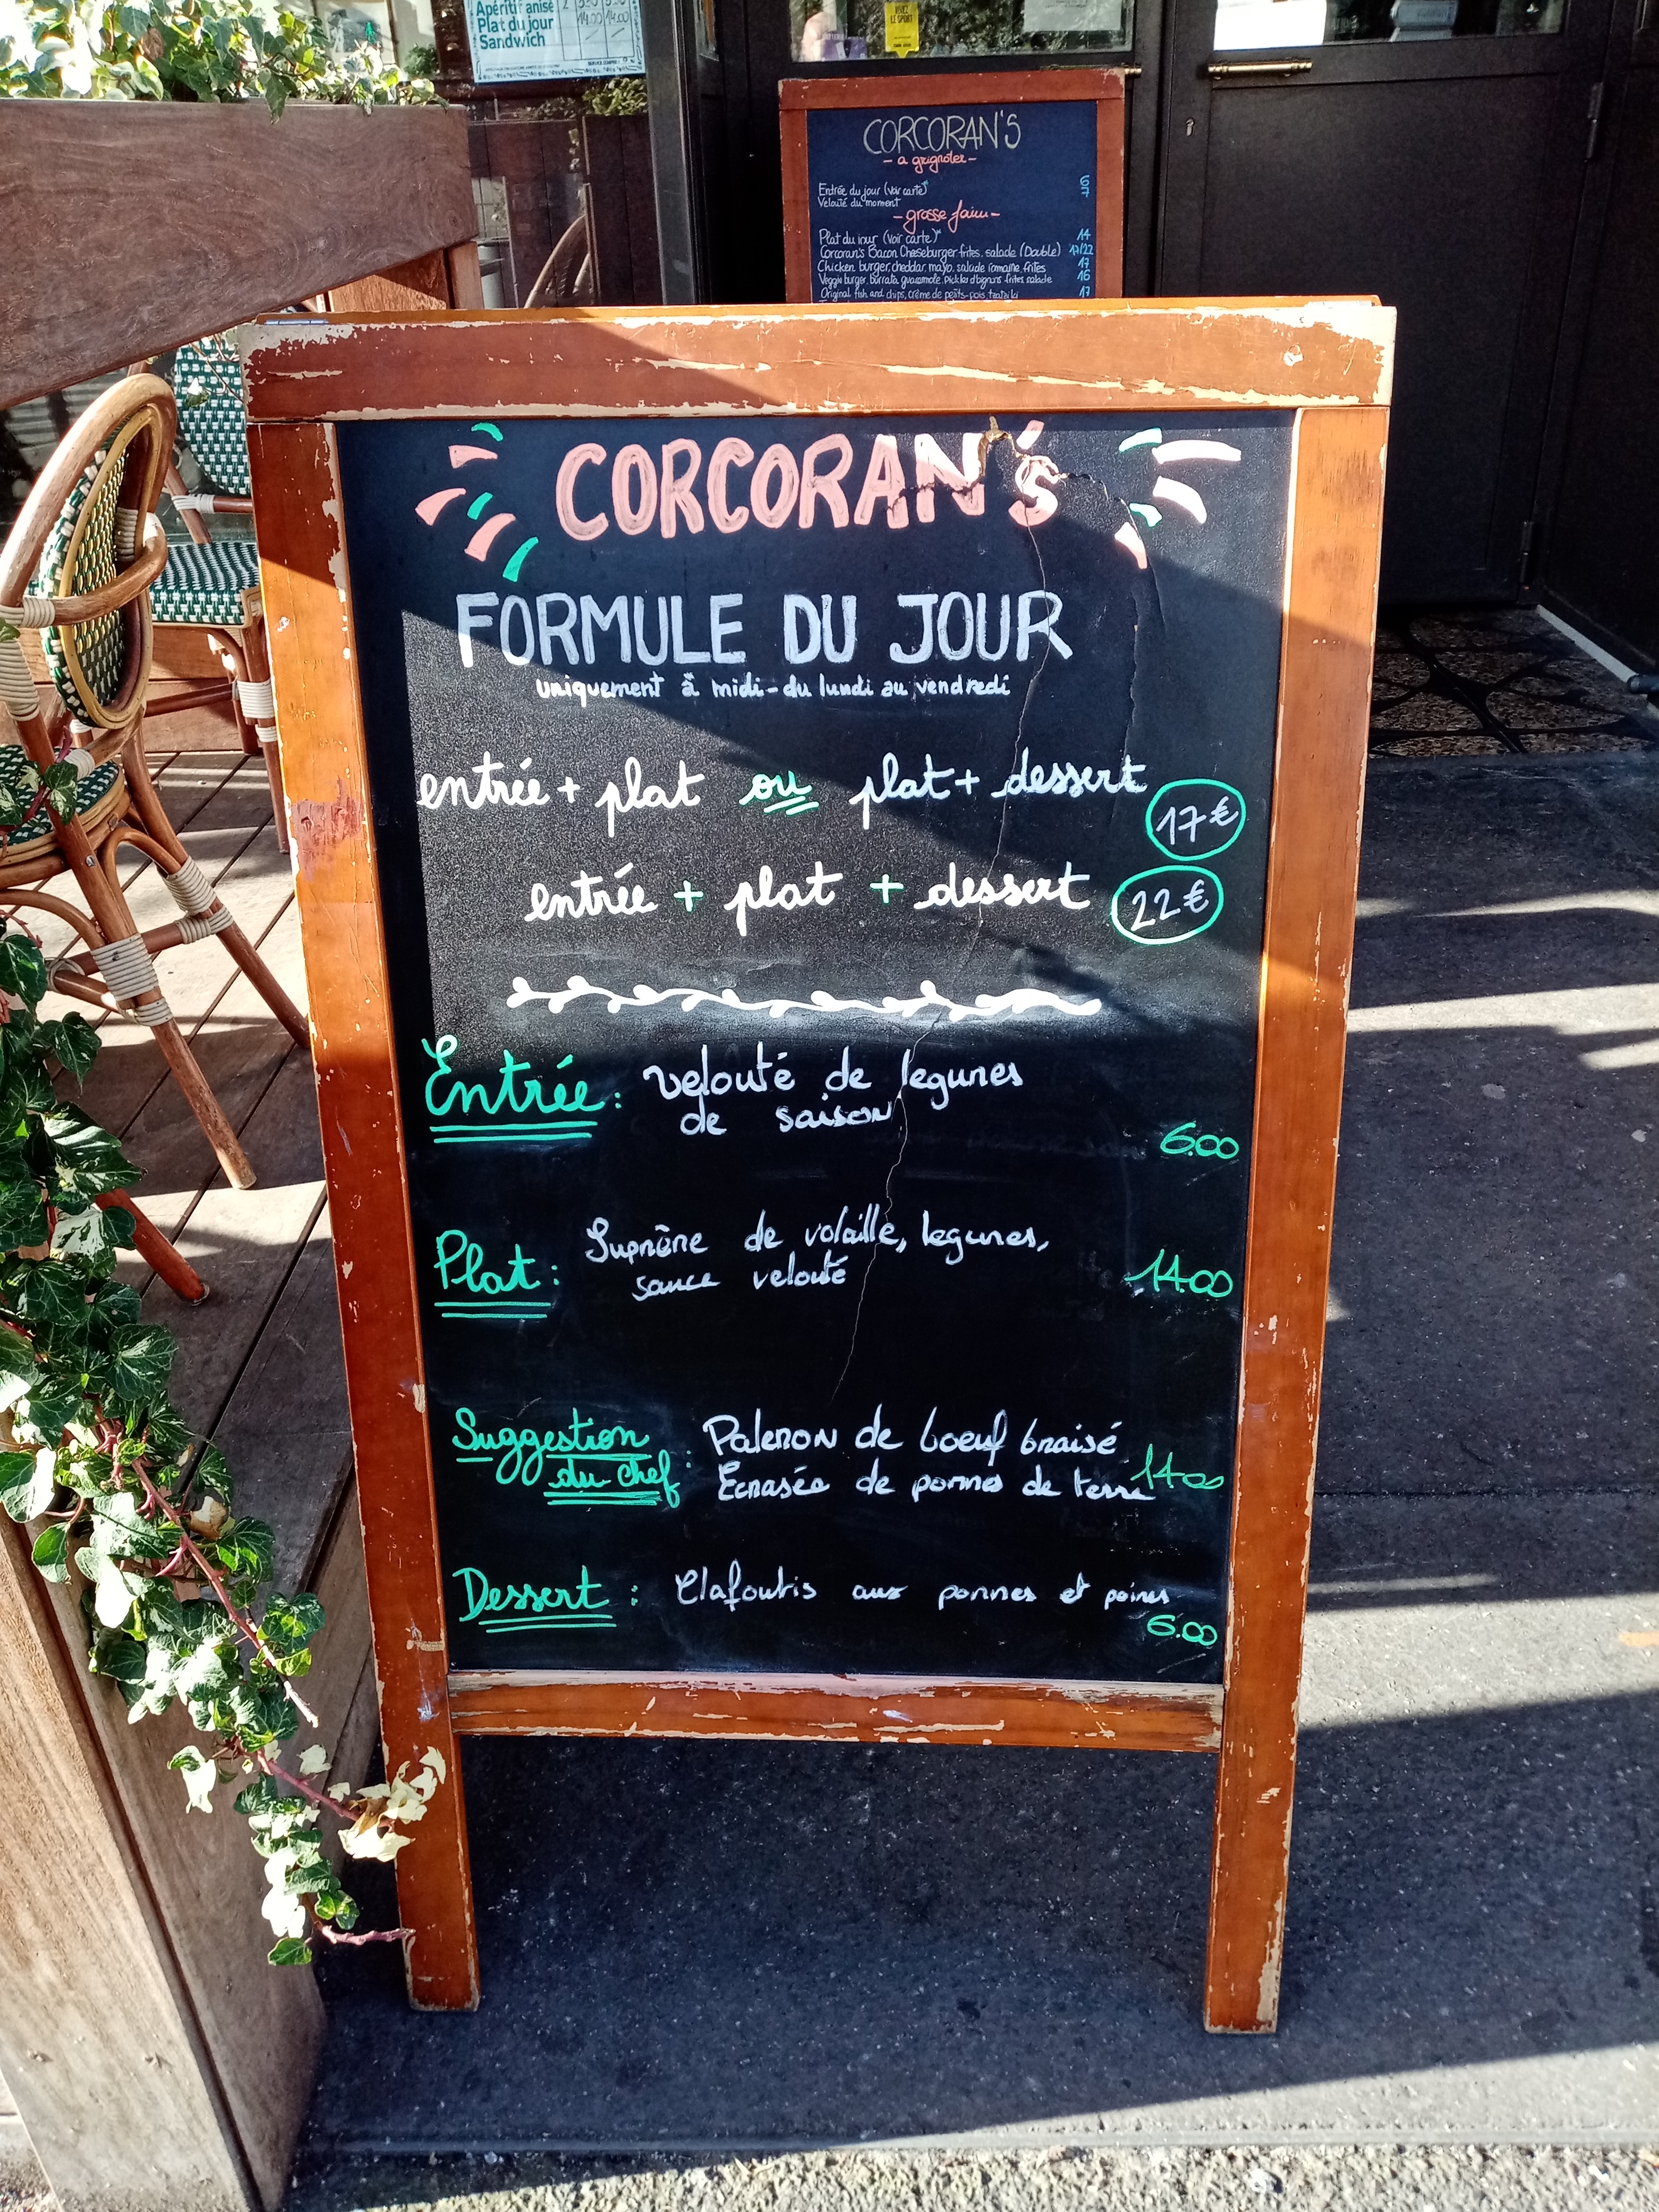 Apéritif anisé
Plat du jour 14.00 14.00
Sandwich
CORCORAN'S
- a grignoter -
Entrée du jour (voir carte) 6
Velouté du moment 7
- grosse faim -
Plat du jour (voir carte) 14
Corcoran's Bacon Cheseburger, frites, salade (Double) 17/22
Chicken burger, cheddar, mayo, salade romaine, frites 17
Veggie burger, burrata, guacamole, pickles d'oignons frites salade 16
Original fish and chips, crème de petits-pois tzatziki 17
CORCORAN's
FORMULE DU JOUR
uniquement à midi - du lundi au vendredi
entrée + plat ou plat + dessert 17€
entrée + plat + dessert 22€
Entrée : velouté de legumes
de saison
6.00
Plat : Suprême de volaille, legumes,
sauce velouté 14.00
Suggestion du chef : Paleron de boeuf braisé
Ecrasée de pommes de terre 14.00
Dessert : Clafoutis aux pommes et poires
6.00